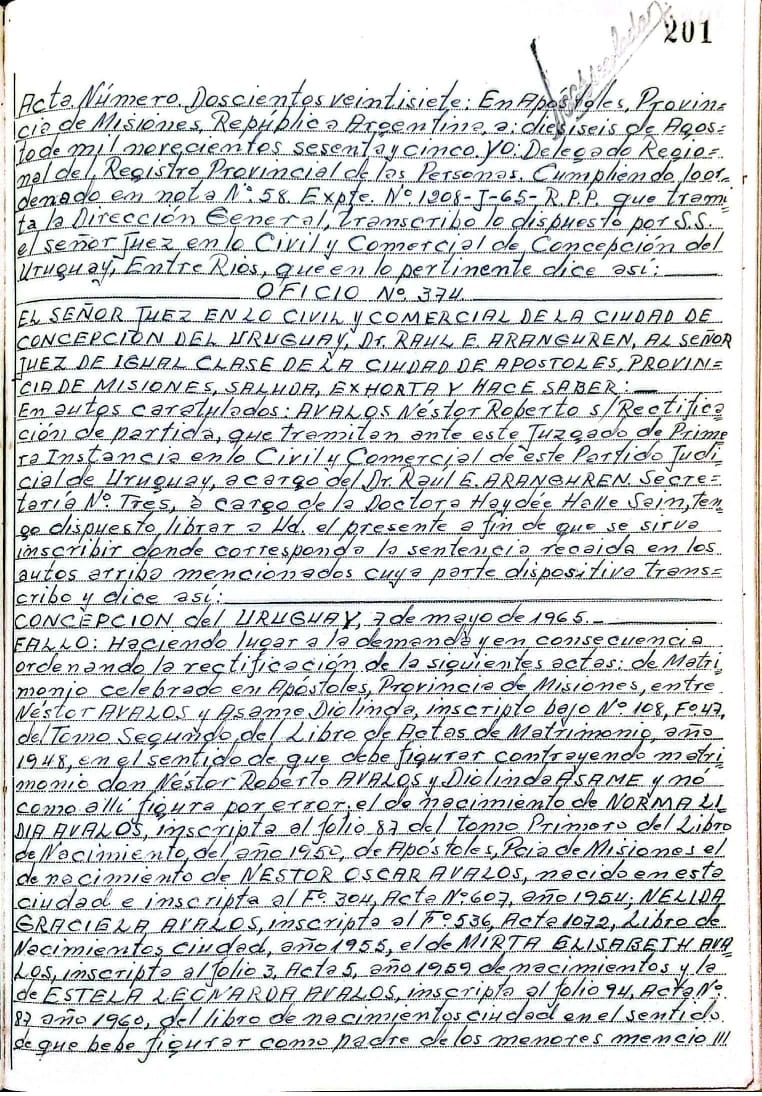 201
Acta. Número. Doscientos veintisiete: En Apóstoles, Provin=
cia de Misiones, República Argentina, a: dieciseis de Agos=
to de mil novecientos sesenta y cinco. YO: Delegado Regio=
nal del Registro Provincial de las Personas. Cumpliendo lo or=
denado en nota Nº 58. Expte. Nº 1908-J-65-R.P.P. que trami=
ta la Dirección General, transcribo lo dispuesto por S.S.
el señor Juez en lo Civil y Comercial de Concepción del
Uruguay, Entre Rios, que en lo pertinente dice así:
OFICIO Nº 374
EL SEÑOR JUEZ EN LO CIVIL y COMERCIAL DE LA CIUDAD DE
CONCEPCION DEL URUGUAY, Dr. RAUL E. ARANGUREN, AL SEÑOR
JUEZ DE IGUAL CLASE DE LA CIUDAD DE APOSTOLES, PROVIN=
CIA DE MISIONES, SALUDA, EXHORTA Y HACE SABER:
En autos caratulados: AVALOS Néstor Roberto s/Rectifica
ción de partida, que tramitan ante este Juzgado de Prime
ra Instancia en lo Civil y Comercial de este Partido Judi=
cial de Uruguay, a cargo del Dr. Raul E. ARANGUREN. Secre=
taría Nº Tres, a cargo de la Doctora Haydée Halle Sain, ten=
go dispuesto librar a Ud. el presente a fin de que se sirva
inscribir donde corresponda la sentencia recaida en los
autos arriba mencionados cuya parte dispositiva trans=
cribo y dice así:
CONCEPCION del URUGUAY, 7 de mayo de 1965.-
FALLO: Haciendo lugar a la demanda y en consecuencia
ordenando la rectificación de la siguientes actas: de Matri=
monio celebrado en Apóstoles, Provincia de Misiones, entre
Néstor AVALOS y Asame Diolinda, inscripto bajo Nº 108, Fº 47,
del Tomo Segundo del Libro de Actas de Matrimonio, año
1948, en el sentido de que debe figurar contrayendo matri=
monio don Néstor Roberto AVALOS y Diolinda ASAME y nó
como allí figura por error, el de nacimiento de NORMA LI
DIA AVALOS, inscripta al folio 87 del tomo Primero del Libro
de Nacimiento, del año 1950, de Apóstoles, Pcia de Misiones el
de nacimiento de NESTOR OSCAR AVALOS, nacido en esta
ciudad e inscripta al Fº 304, Acta Nº 607, año 1954; NELIDA
GRACIELA AVALOS, inscripta al Fº 536, Acta 1072, Libro de
Nacimientos ciudad, año 1955, el de MIRTA ELISABETH AVA
LOS, inscripta al folio 3, Acta 5, año 1959 de nacimientos y la
de ESTELA LEONARDA AVALOS, inscripta al folio 94, Acta Nº
87 año 1960, del libro de nacimientos ciudad en el sentido
de que bebe figurar como padre de los menores mencio///